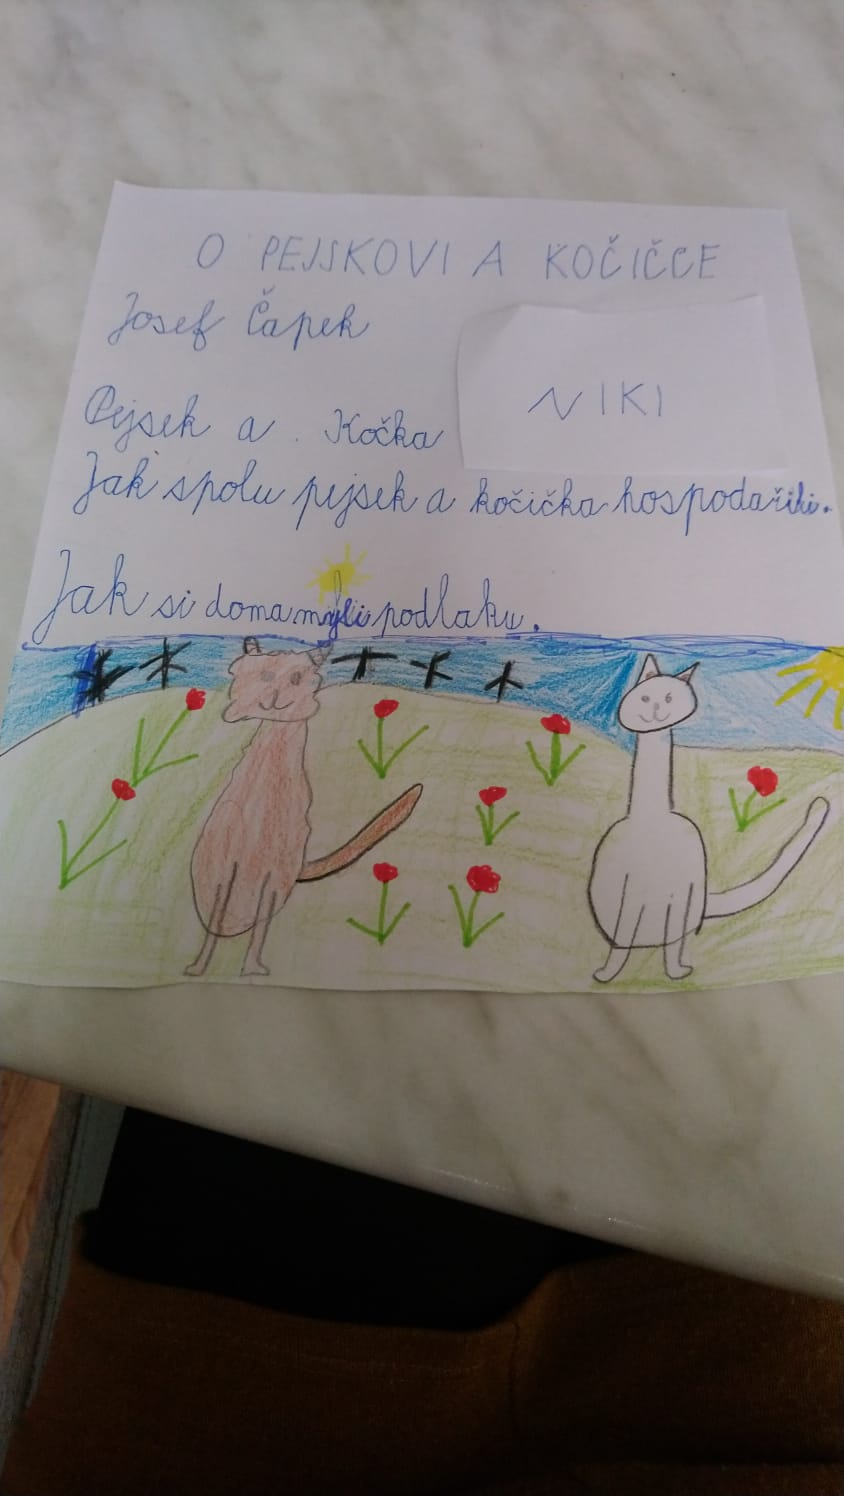 O PEJSKOVI A KOČIČCE
Josef Čapek
NIKI
Pejsek a Kočka
Jak spolu pejsek a kočička hospodařili.
Jak si doma myli podlaku.